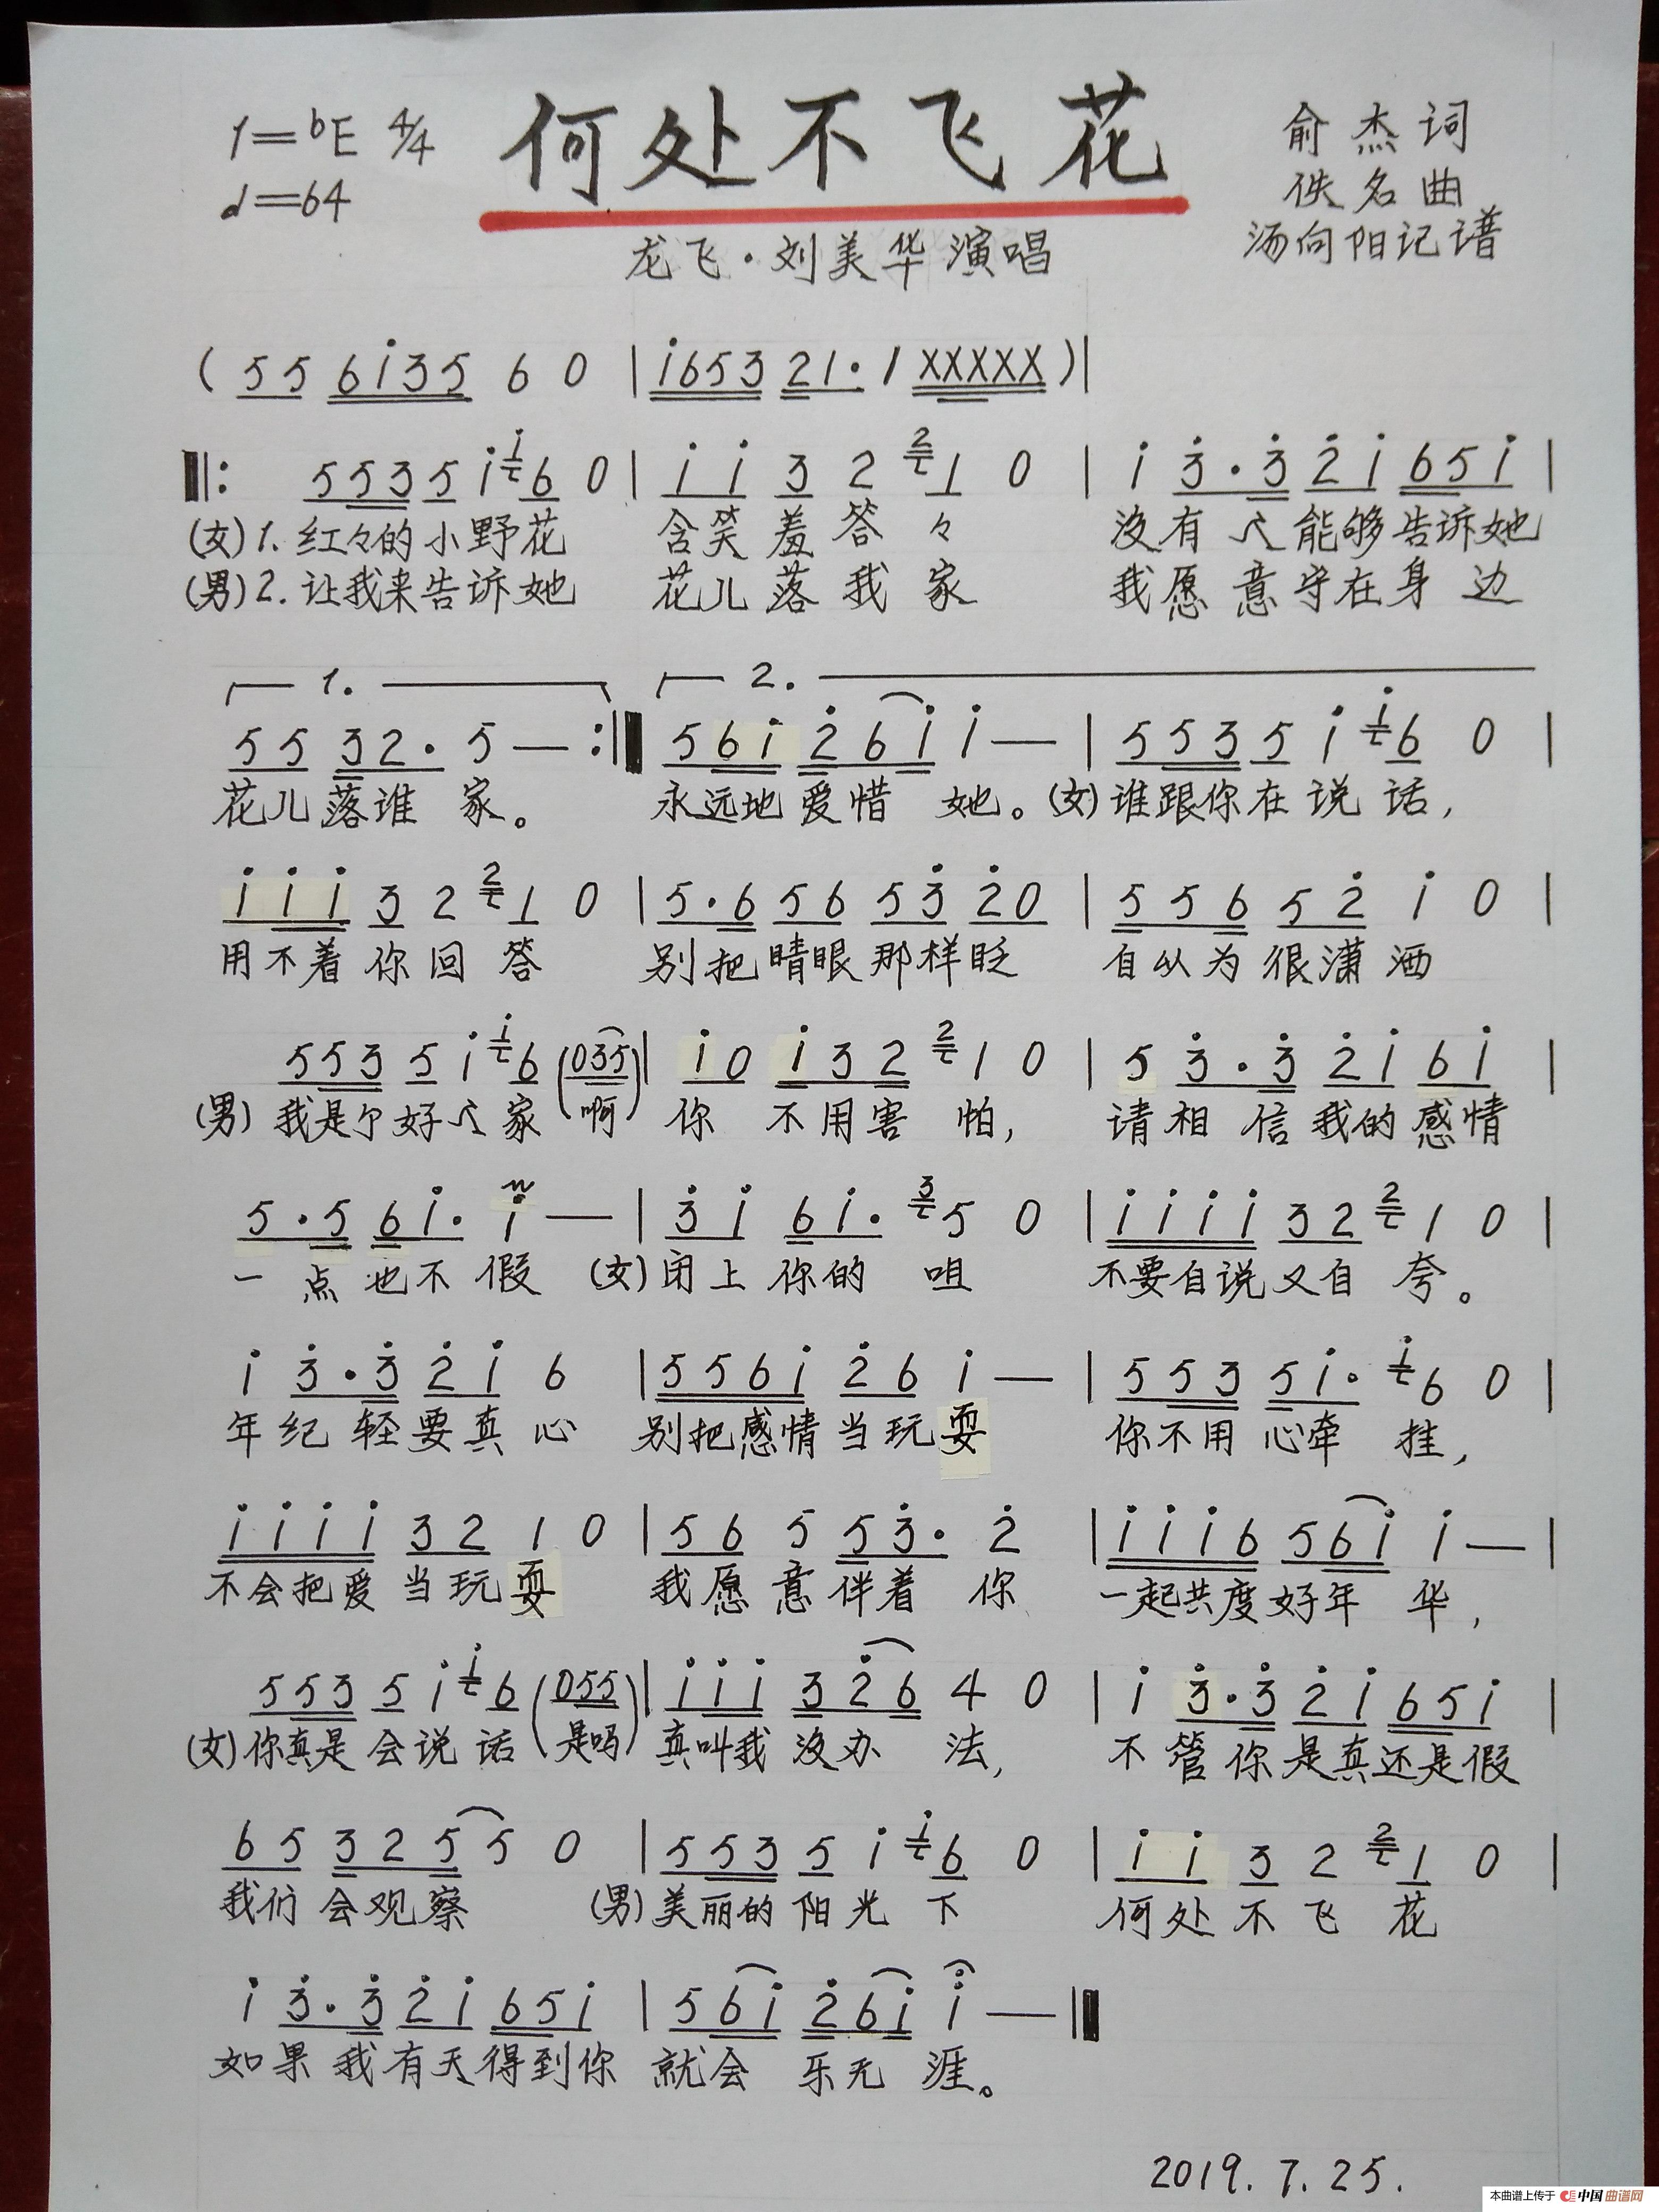 1=bE 4/4 何处不飞花 俞杰词
♩=64 佚名曲
龙飞·刘美华演唱 汤向阳记谱
( 5 5 6i35 6 0 | i653 21· 1 XXXXX )|
‖: 5535 i i6 0 | i i 3 2 21 0 | i 3·3 2i 65i |
(女)1. 红々的小野花 含笑羞答々 没有个能够告诉她
(男)2. 让我来告诉她 花儿落我家 我愿意守在身边
1. 2.
55 32· 5 — :‖ 56i 26i i — | 5535 i i6 0 |
花儿落谁家。 永远地爱惜她。(女)谁跟你在说话,
iii 3 2 21 0 | 5·6 56 53 20 | 556 52 i 0 |
用不着你回答 别把睛眼那样眨 自从为很潇洒
553 5 i i6 (035) | i0 i32 21 0 | 5 3·3 2i 6i |
(男) 我是个好个家(啊) 你 不用害怕, 请相信我的感情
5·5 6i· i — | 3i 6i· 35 0 | iiii 32 21 0 |
一点也不假 (女)闭上你的咀 不要自说又自夸。
i 3·3 2i 6 | 556i 26 i — | 553 5i· i6 0 |
年纪轻要真心 别把感情当玩耍 你不用心牵挂,
iiii 32 1 0 | 56 5 53· 2 | iii6 56i i — |
不会把爱当玩耍 我愿意伴着你 一起共度好年华,
553 5 i i6 (055) | iii 326 4 0 | i 3·3 2i 65i |
(女)你真是会说话(是吗) 真叫我没办法, 不管你是真还是假
65 325 5 0 | 553 5 i i6 0 | i i 3 2 21 0 |
我们会观察 (男)美丽的阳光下 何处不飞花
i 3·3 2i 65i | 56i 26i i — ‖
如果我有天得到你 就会乐无涯。
2019.7.25.
本曲谱上传于 中国曲谱网